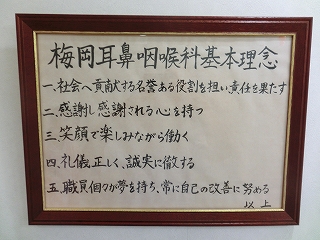 梅岡耳鼻咽喉科基本理念
一、社会へ貢献する名誉ある役割を担い責任を果たす
二、感謝し感謝される心を持つ
三、笑顔で楽しみながら働く
四、礼儀正しく、誠実に徹する
五、職員個々が夢を持ち、常に自己の改善に努める
以上